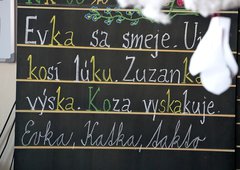 Evka sa smeje. Uj
kosí lúku. Zuzanka
výska. Koza vyskakuje.
Evka, Katka, takto